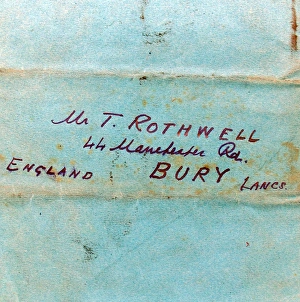 Mr T. ROTHWELL
44 Manchester Rd.
BURY LANCS.
ENGLAND